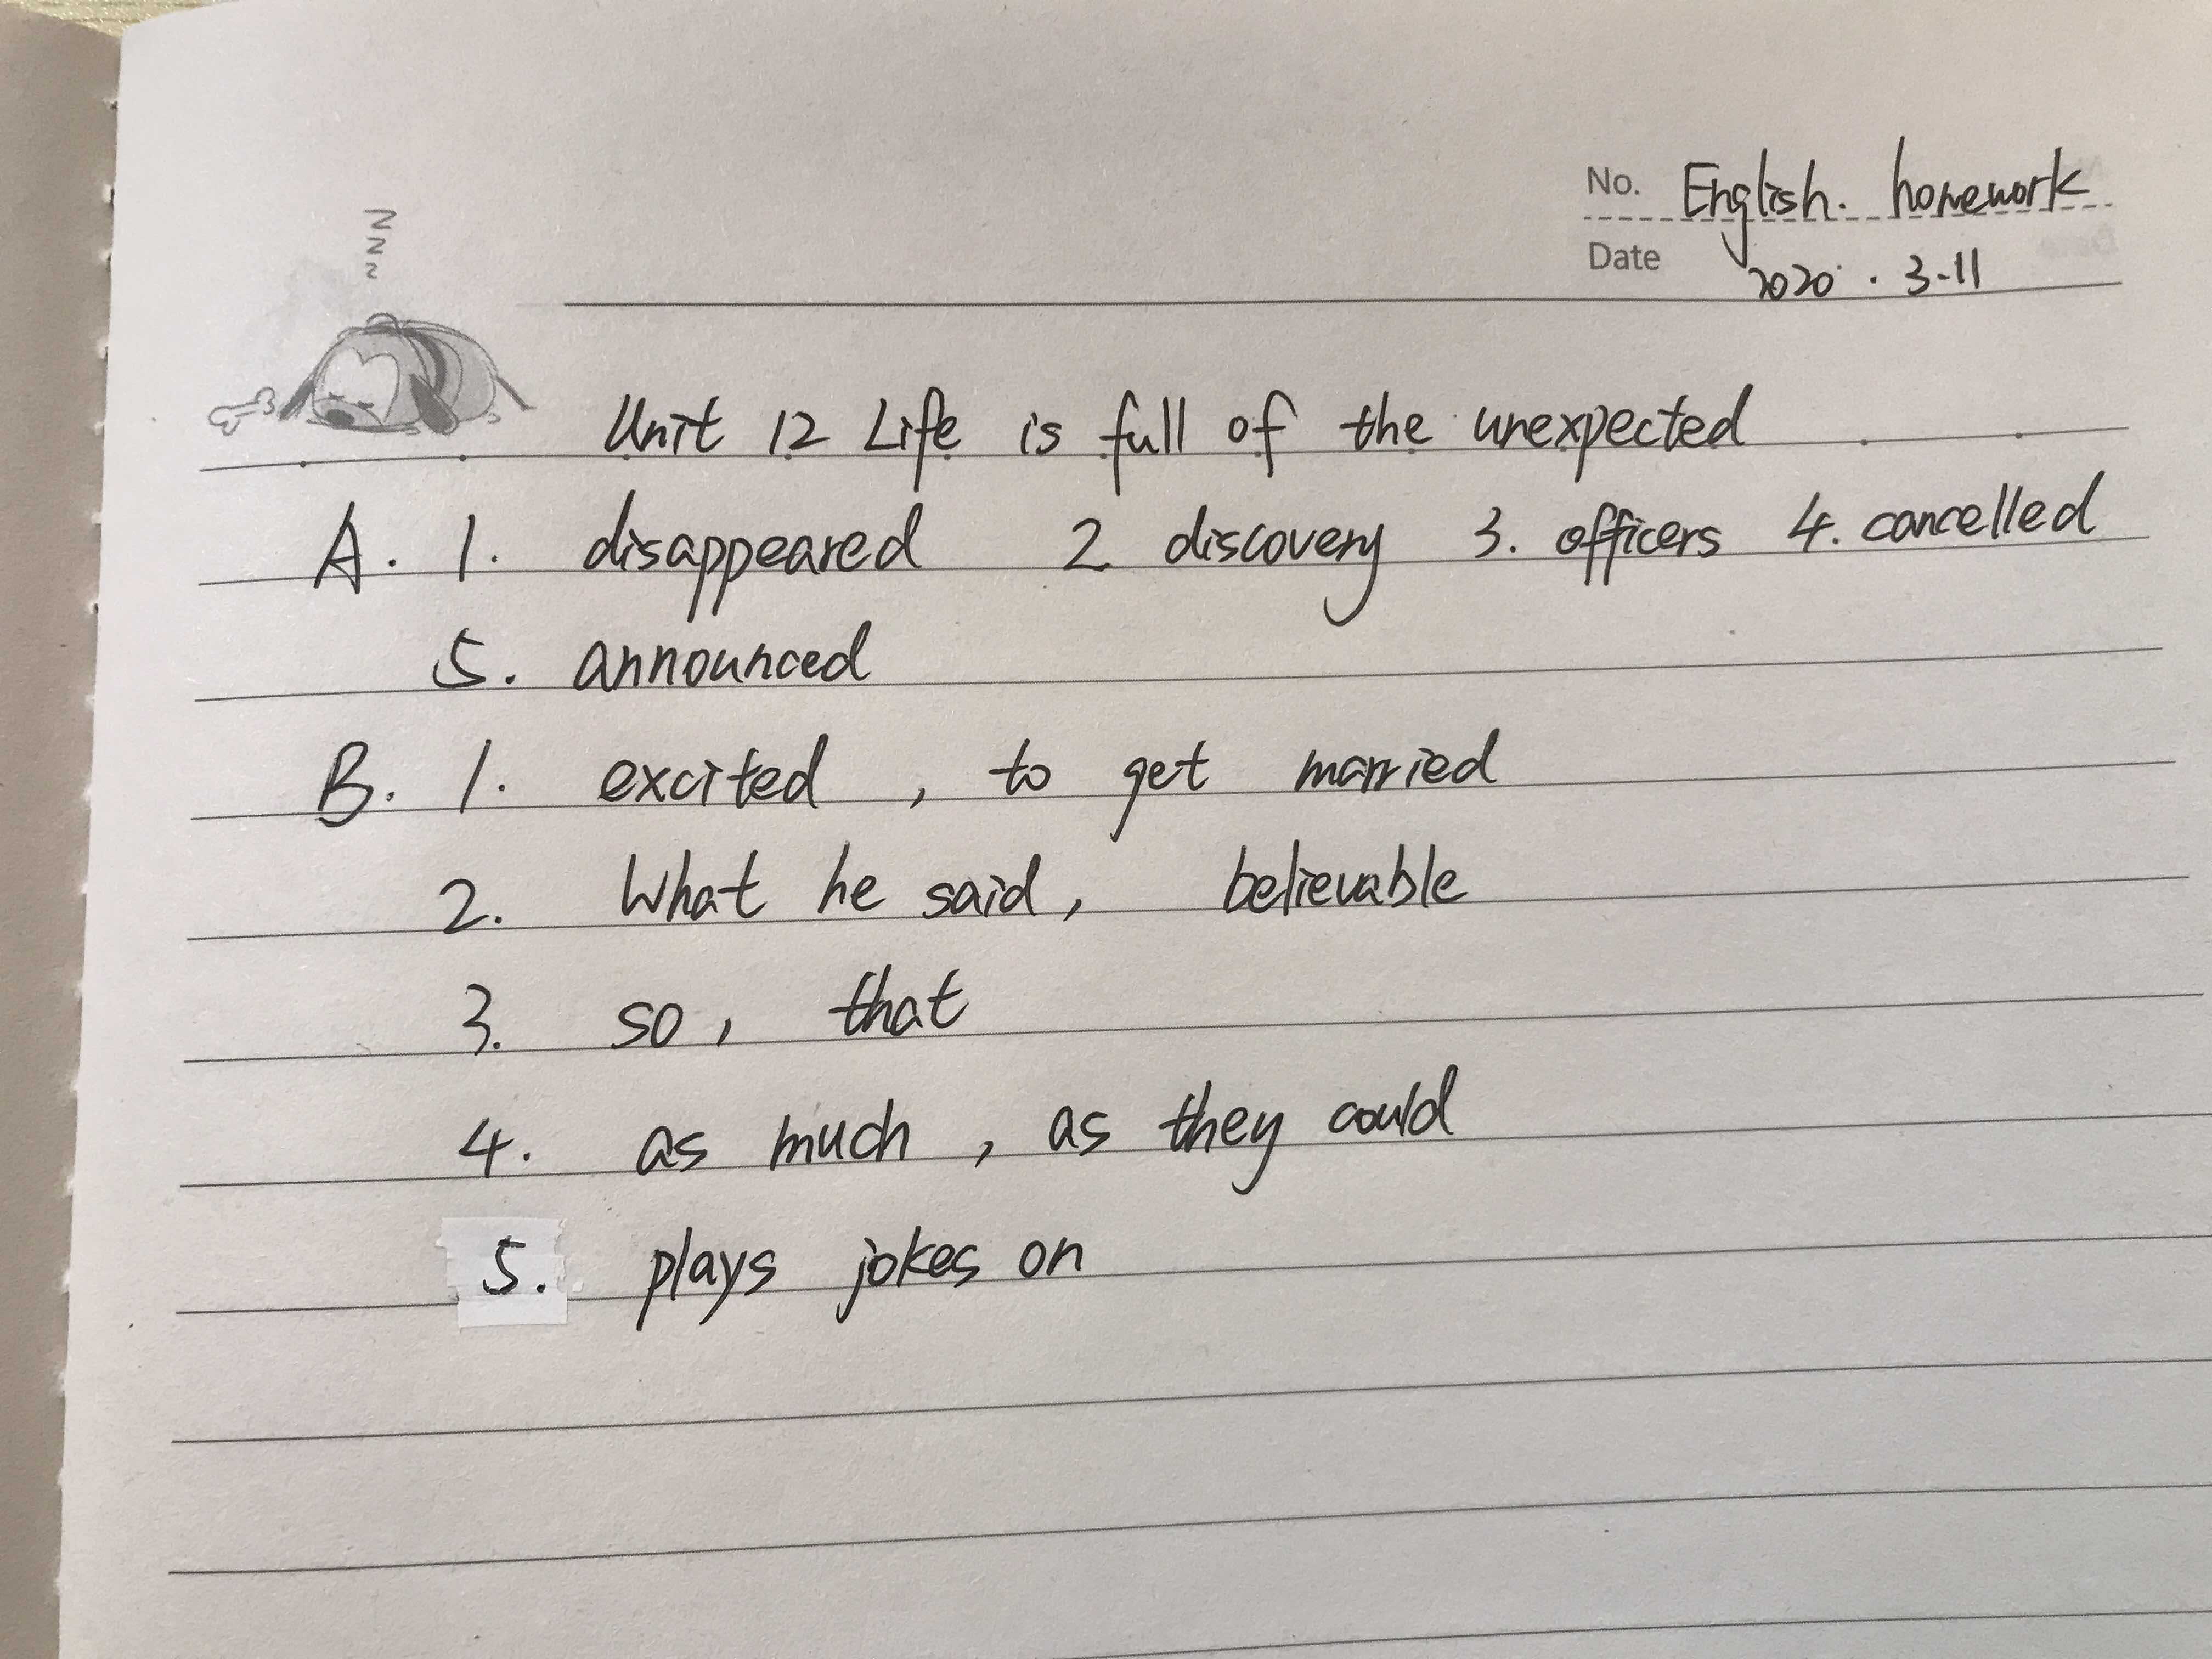 No. English. homework
Date 2020.3-11
ZZZ
Unit 12 Life is full of the unexpected
A. 1. disappeared 2 discovery 3. officers 4. cancelled
5. announced
B. 1. excited , to get married
2. What he said, believable
3. so, that
4. as much, as they could
5. plays jokes on